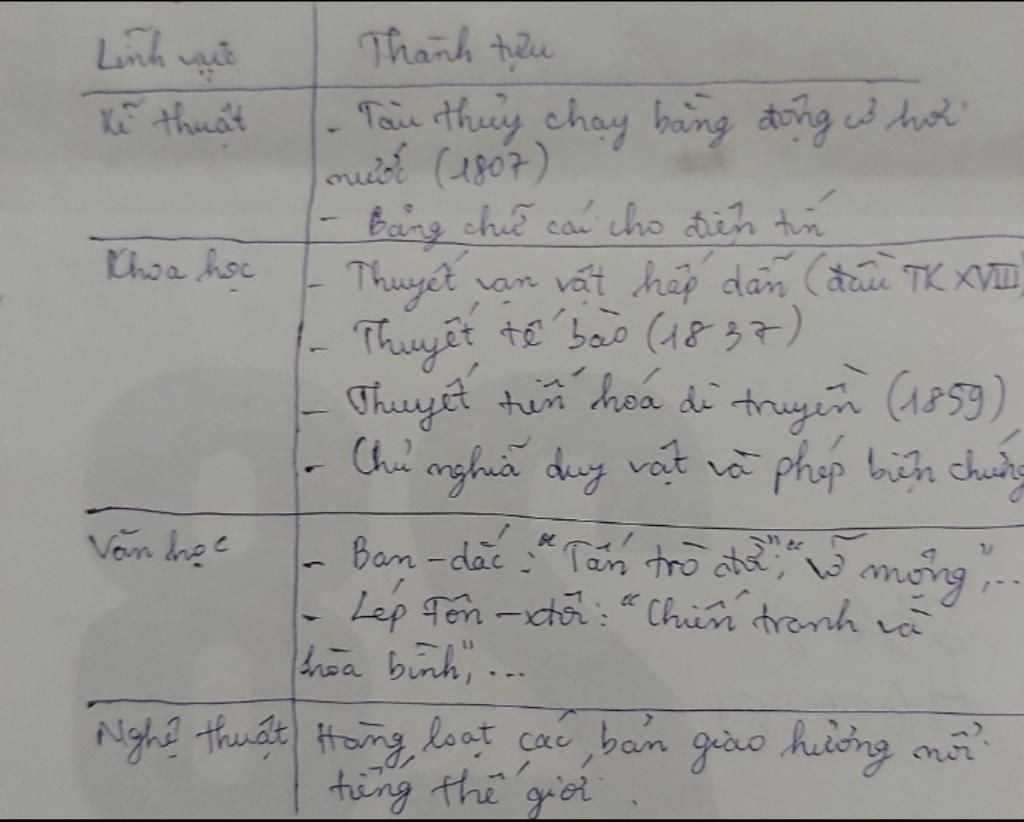 Lĩnh vực Thành tựu
Kĩ thuật - Tàu thủy chạy bằng động cơ hơi
nước (1807)
- Bảng chữ cái cho điện tín
Khoa học - Thuyết vạn vật hấp dẫn (đầu TK XVIII)
- Thuyết tế bào (1837)
- Thuyết tiến hoá di truyền (1859)
- Chủ nghĩa duy vật và phép biện chứng
Văn học - Ban-dắc: "Tấn trò đời"; "Vỡ mộng",...
- Lép Tôn-xtôi: "Chiến tranh và
hòa bình",...
Nghệ thuật Hàng loạt các bản giao hưởng nổi
tiếng thế giới.